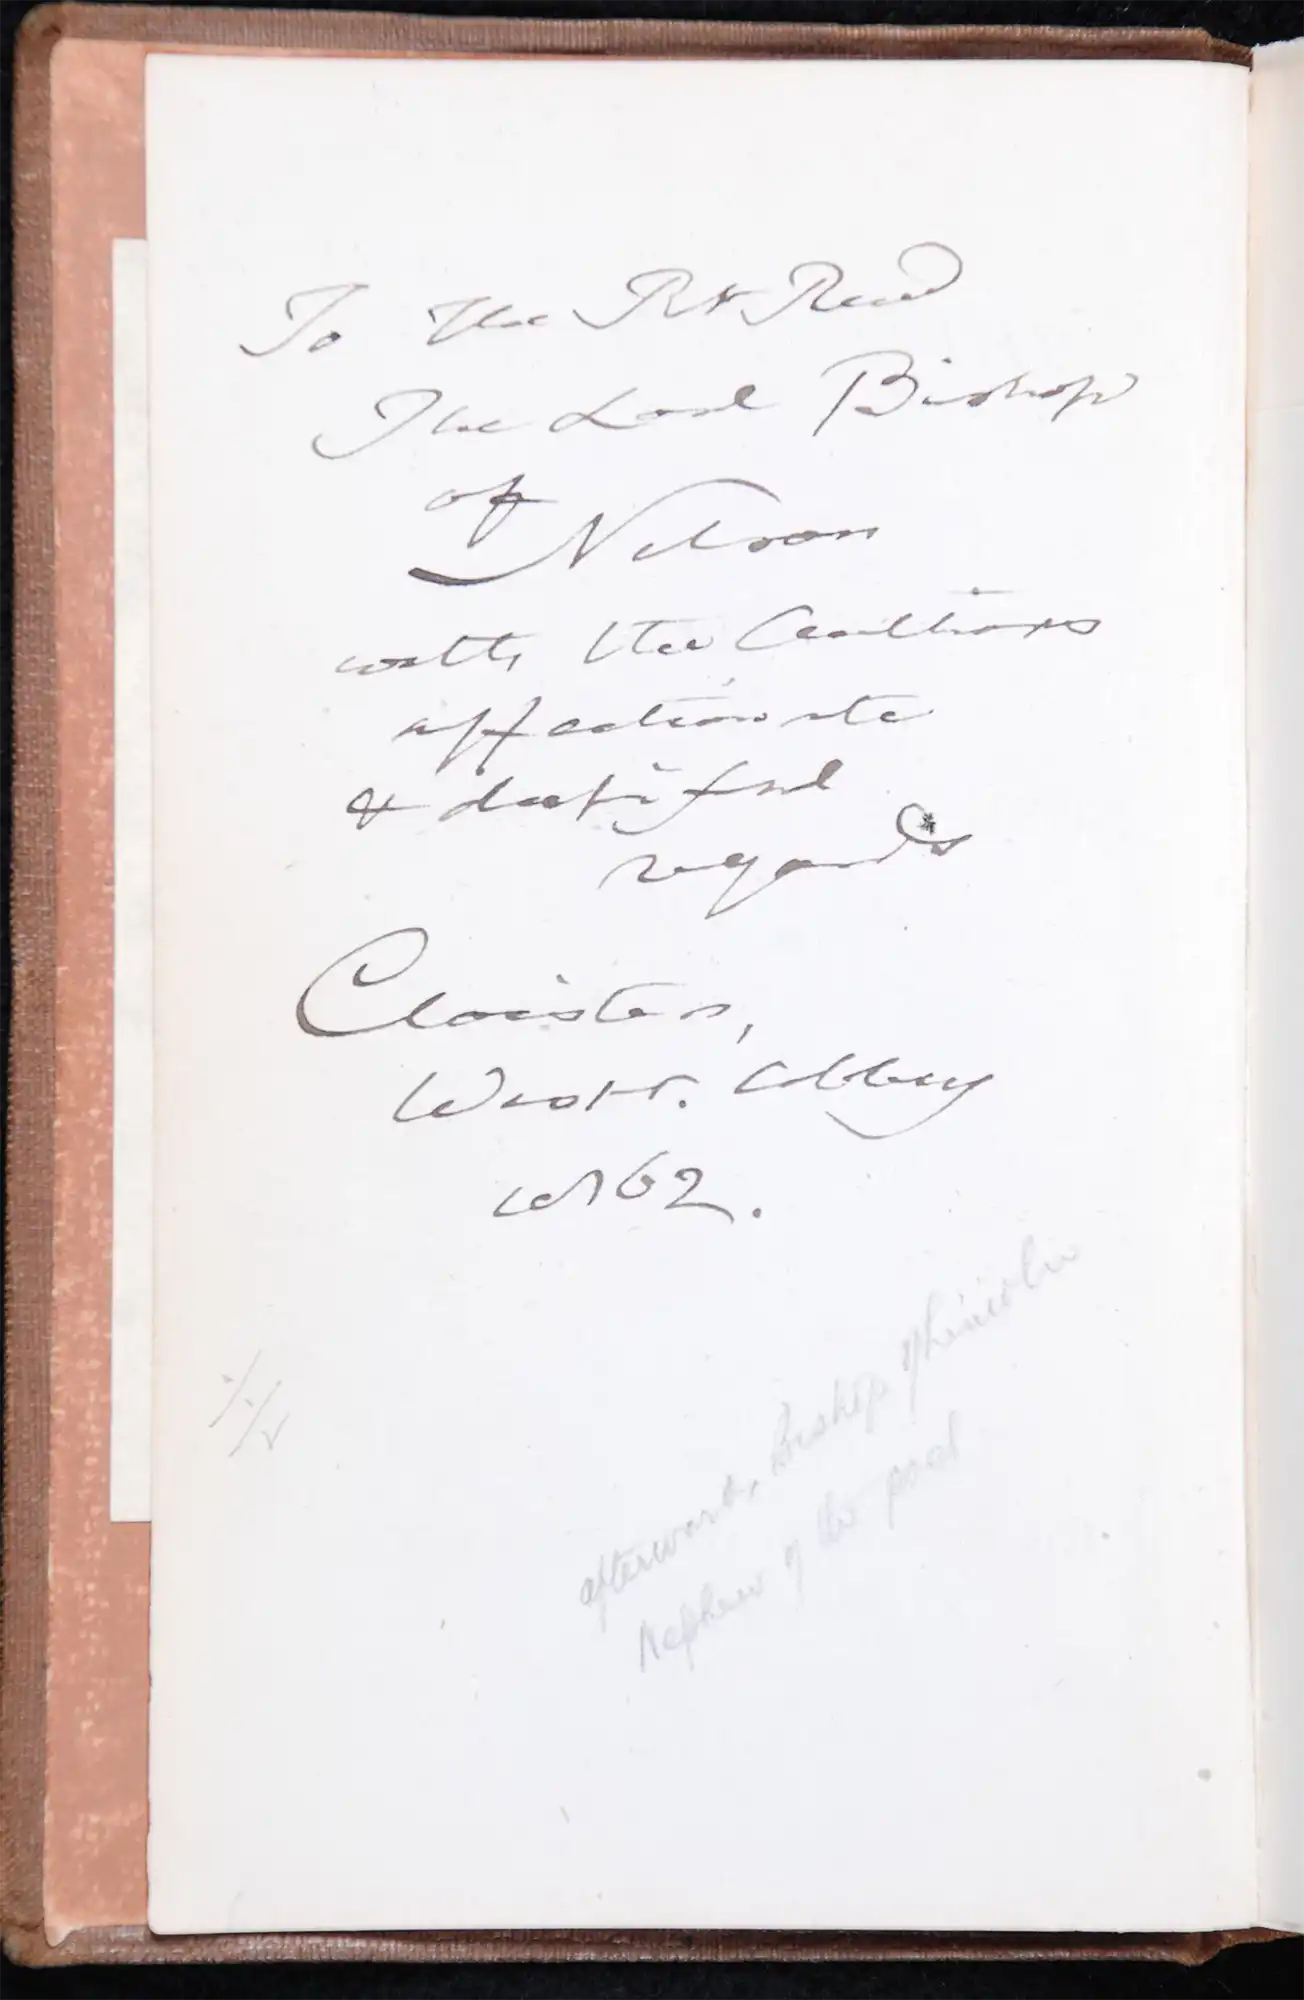 To the Rt Revd
The Lord Bishop
of
Nelson
with the Author's
affectionate
& dutiful
regards *
Cloisters,
Westr. Abbey
1862.
1/-
1/2
afterwards Bishop of Lincoln
Nephew of the poet